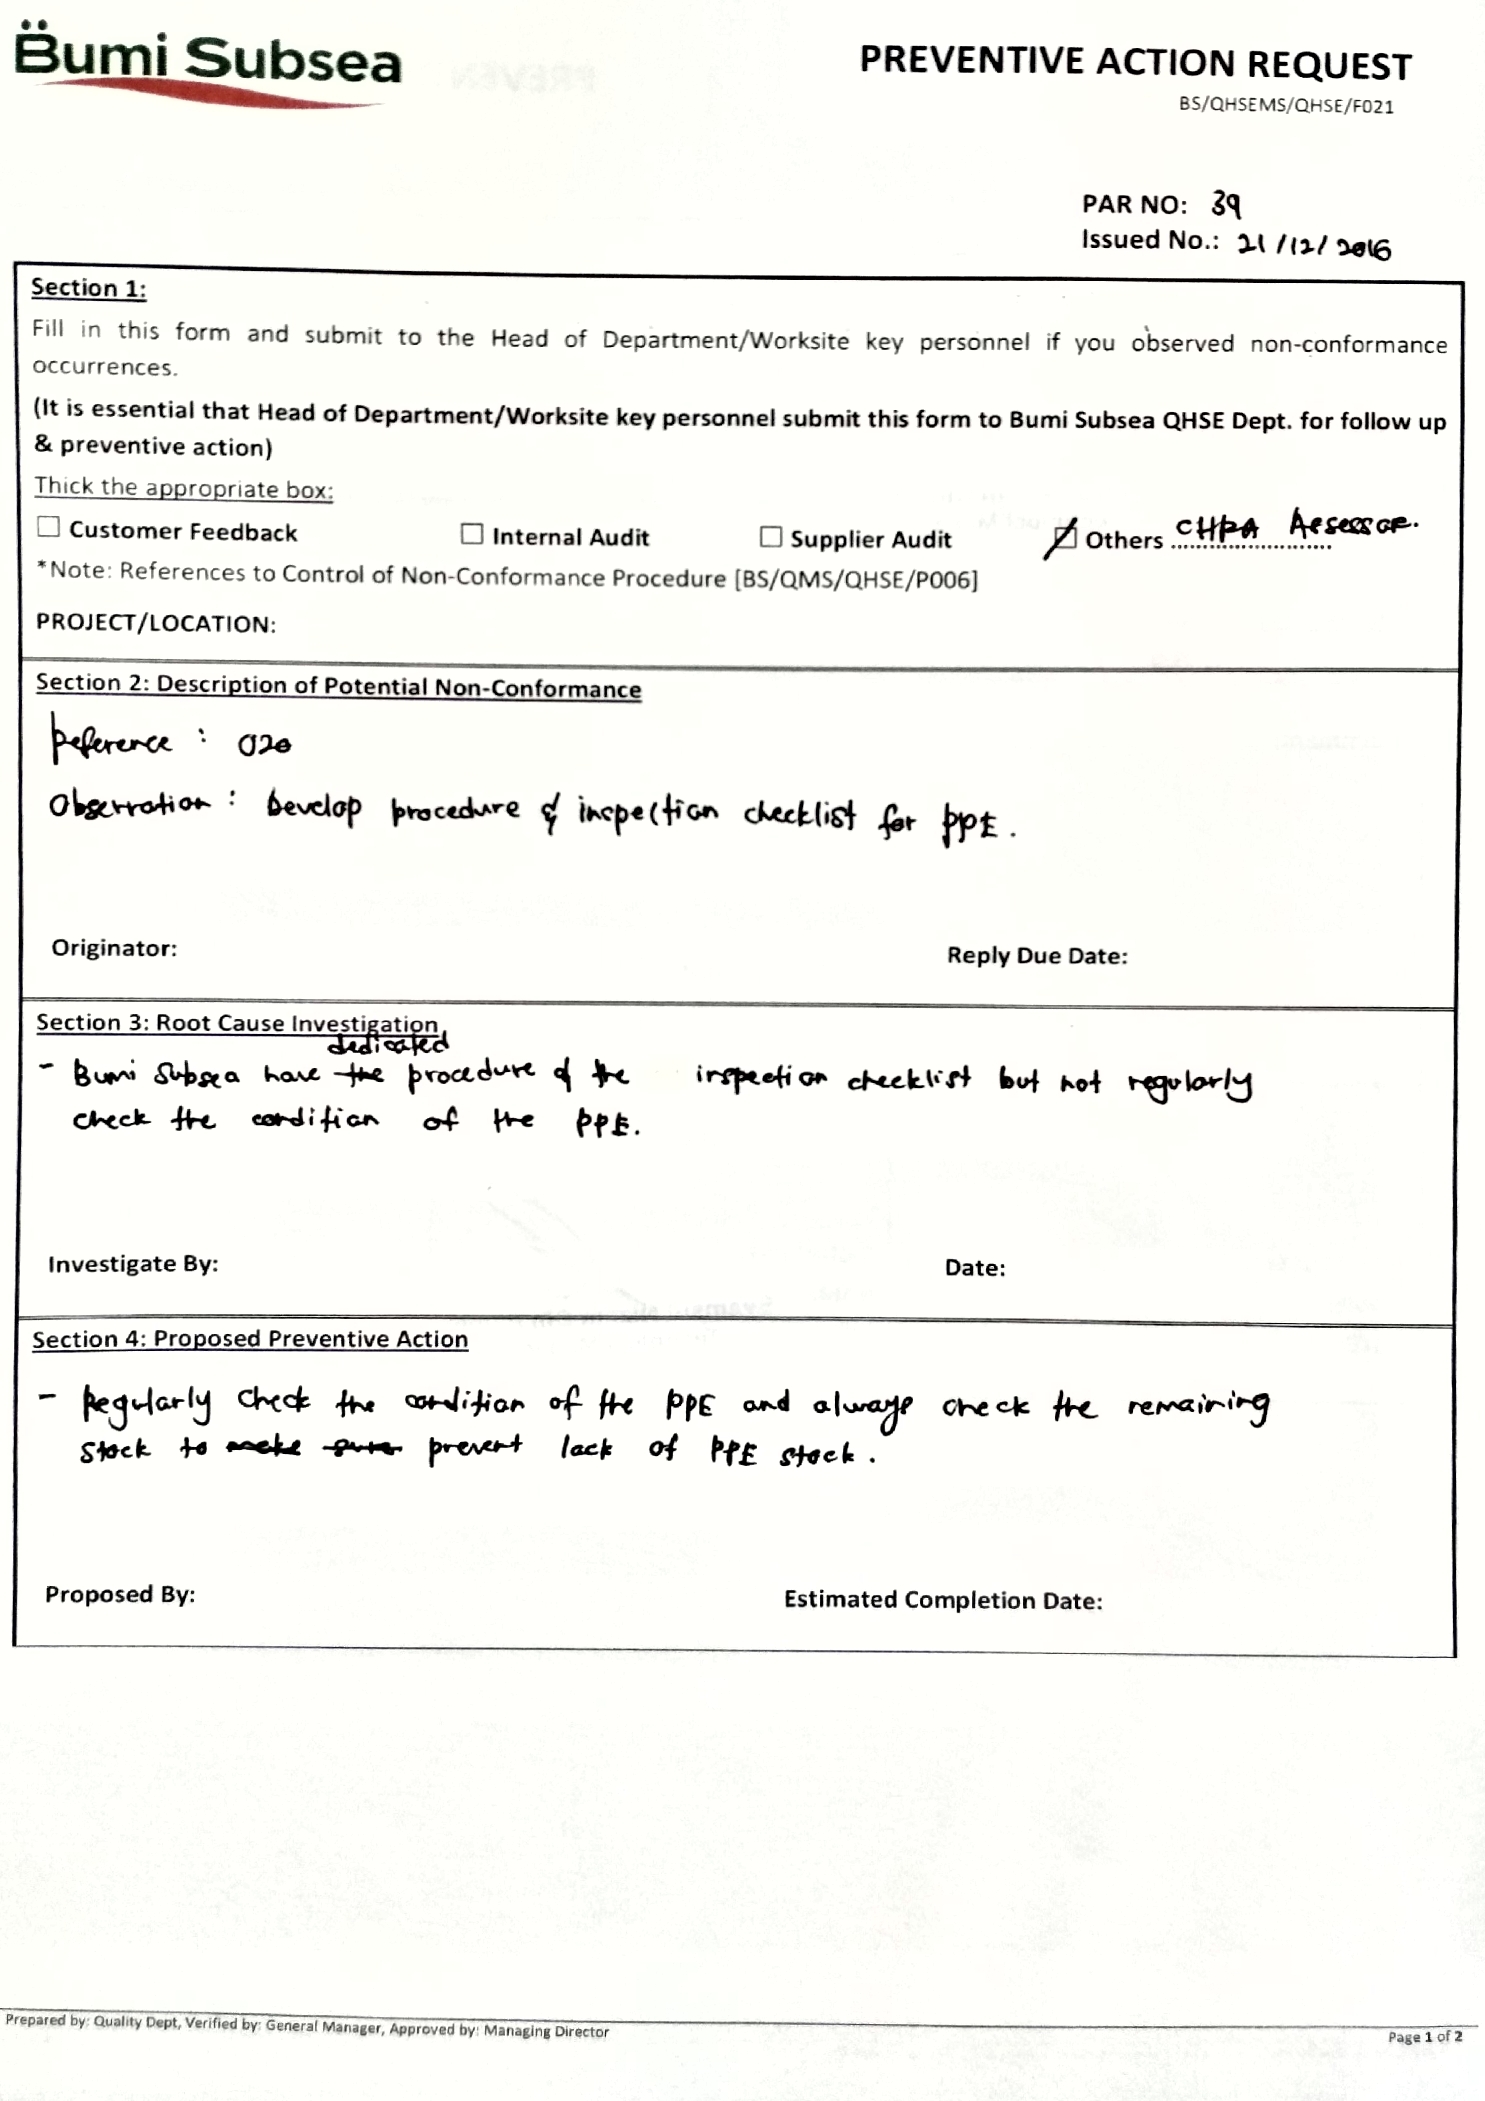 Bumi Subsea
PREVENTIVE ACTION REQUEST
BS/QHSEMS/QHSE/F021
PAR NO: 39
Issued No.: 21/12/2016
Section 1:
Fill in this form and submit to the Head of Department/Worksite key personnel if you observed non-conformance
occurrences.
(It is essential that Head of Department/Worksite key personnel submit this form to Bumi Subsea QHSE Dept. for follow up
& preventive action)
Thick the appropriate box:
Customer Feedback Internal Audit Supplier Audit Others CHRA Assessor.
*Note: References to Control of Non-Conformance Procedure [BS/QMS/QHSE/P006]
PROJECT/LOCATION:
Section 2: Description of Potential Non-Conformance
Reference : 020
Observation : Develop procedure & inspection checklist for PPE.
Originator: Reply Due Date:
Section 3: Root Cause Investigation
dedicated
- Bumi Subsea have the procedure & the inspection checklist but not regularly
check the condition of the PPE.
Investigate By: Date:
Section 4: Proposed Preventive Action
- Regularly check the condition of the PPE and always check the remaining
stock to make sure prevent lack of PPE stock.
Proposed By: Estimated Completion Date:
Prepared by: Quality Dept, Verified by: General Manager, Approved by: Managing Director
Page 1 of 2